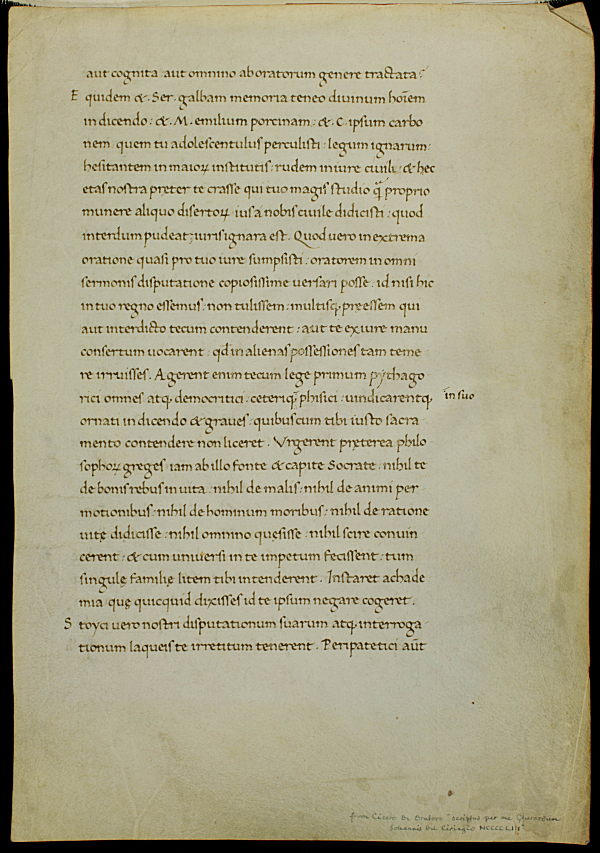 aut cognita aut omnino ab oratorum genere tractata?
E quidem & Ser. galbam memoria teneo diuinum hoīem
in dicendo: & M. emilium porcinam: & C. ipsum carbo
nem quem tu adolescentulus perculisti: legum ignarum:
hesitantem in maioꝝ institutis: rudem in iure ciuili: & hec
etas nostra preter te crasse qui tuo magis studio q̃ proprio
munere aliquo disertoꝝ ius a nobis ciuile didicisti: quod
interdum pudeat; iuris ignara est. Quod uero in extrema
oratione quasi pro tuo iure sumpsisti: oratorem in omni
sermonis disputatione copiosissime uersari posse. id nisi hic
in tuo regno essemus: non tulissem: multisq; preessem qui
aut interdicto tecum contenderent: aut te ex iure manu
consertum uocarent: qd in alienas possessiones tam teme
re irruisses. Agerent enim tecum lege primum pythago
rici omnes atq; democritici: ceteriq; phisici: uindicarentq; in suo
ornati in dicendo & graues: quibuscum tibi iusto sacra
mento contendere non liceret. Vrgerent pręterea philo
sophoꝝ greges iam ab illo fonte & capite Socrate: nihil te
de bonis rebus in uita: nihil de malis: nihil de animi per
motionibus: nihil de hominum moribus: nihil de ratione
uitę didicisse: nihil omnino quęsisse: nihil scire conuin
cerent: & cum uniuersi in te impetum fecissent: tum
singulę familię litem tibi intenderent. Instaret achade
mia quę quicquid dixisses id te ipsum negare cogeret.
S toyci uero nostri disputationum suarum atq; interroga
tionum laqueis te irretitum tenerent. Peripatetici aūt
from Cicero De Oratore "scriptus per me Gherardum
Johannis del Ciriagio MCCCCLIII"